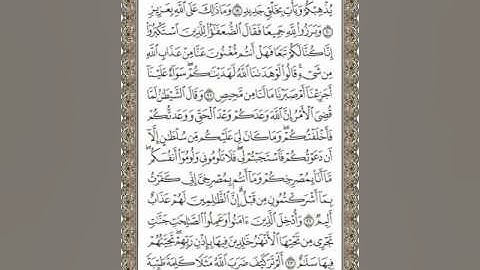 يُذْهِبْكُمْ وَيَأْتِ بِخَلْقٍ جَدِيدٍ ١٩ وَمَا ذَٰلِكَ عَلَى ٱللَّهِ بِعَزِيزٍ
٢٠ وَبَرَزُواْ لِلَّهِ جَمِيعًا فَقَالَ ٱلضُّعَفَٰٓؤُاْ لِلَّذِينَ ٱسْتَكْبَرُوٓاْ
إِنَّا كُنَّا لَكُمْ تَبَعًا فَهَلْ أَنتُم مُّغْنُونَ عَنَّا مِنْ عَذَابِ ٱللَّهِ
مِن شَىْءٍ ۚ قَالُواْ لَوْ هَدَىٰنَا ٱللَّهُ لَهَدَيْنَٰكُمْ ۖ سَوَآءٌ عَلَيْنَآ
أَجَزِعْنَآ أَمْ صَبَرْنَا مَا لَنَا مِن مَّحِيصٍ ٢١ وَقَالَ ٱلشَّيْطَٰنُ لَمَّا
قُضِىَ ٱلْأَمْرُ إِنَّ ٱللَّهَ وَعَدَكُمْ وَعْدَ ٱلْحَقِّ وَوَعَدتُّكُمْ
فَأَخْلَفْتُكُمْ ۖ وَمَا كَانَ لِىَ عَلَيْكُم مِّن سُلْطَٰنٍ إِلَّآ
أَن دَعَوْتُكُمْ فَٱسْتَجَبْتُمْ لِى ۖ فَلَا تَلُومُونِى وَلُومُوٓاْ أَنفُسَكُم ۖ
مَّآ أَنَا۠ بِمُصْرِخِكُمْ وَمَآ أَنتُم بِمُصْرِخِىَّ ۖ إِنِّى كَفَرْتُ
بِمَآ أَشْرَكْتُمُونِ مِن قَبْلُ ۗ إِنَّ ٱلظَّٰلِمِينَ لَهُمْ عَذَابٌ
أَلِيمٌ ٢٢ وَأُدْخِلَ ٱلَّذِينَ ءَامَنُواْ وَعَمِلُواْ ٱلصَّٰلِحَٰتِ جَنَّٰتٍ
تَجْرِى مِن تَحْتِهَا ٱلْأَنْهَٰرُ خَٰلِدِينَ فِيهَا بِإِذْنِ رَبِّهِمْ ۖ تَحِيَّتُهُمْ
فِيهَا سَلَٰمٌ ٢٣ أَلَمْ تَرَ كَيْفَ ضَرَبَ ٱللَّهُ مَثَلًا كَلِمَةً طَيِّبَةً